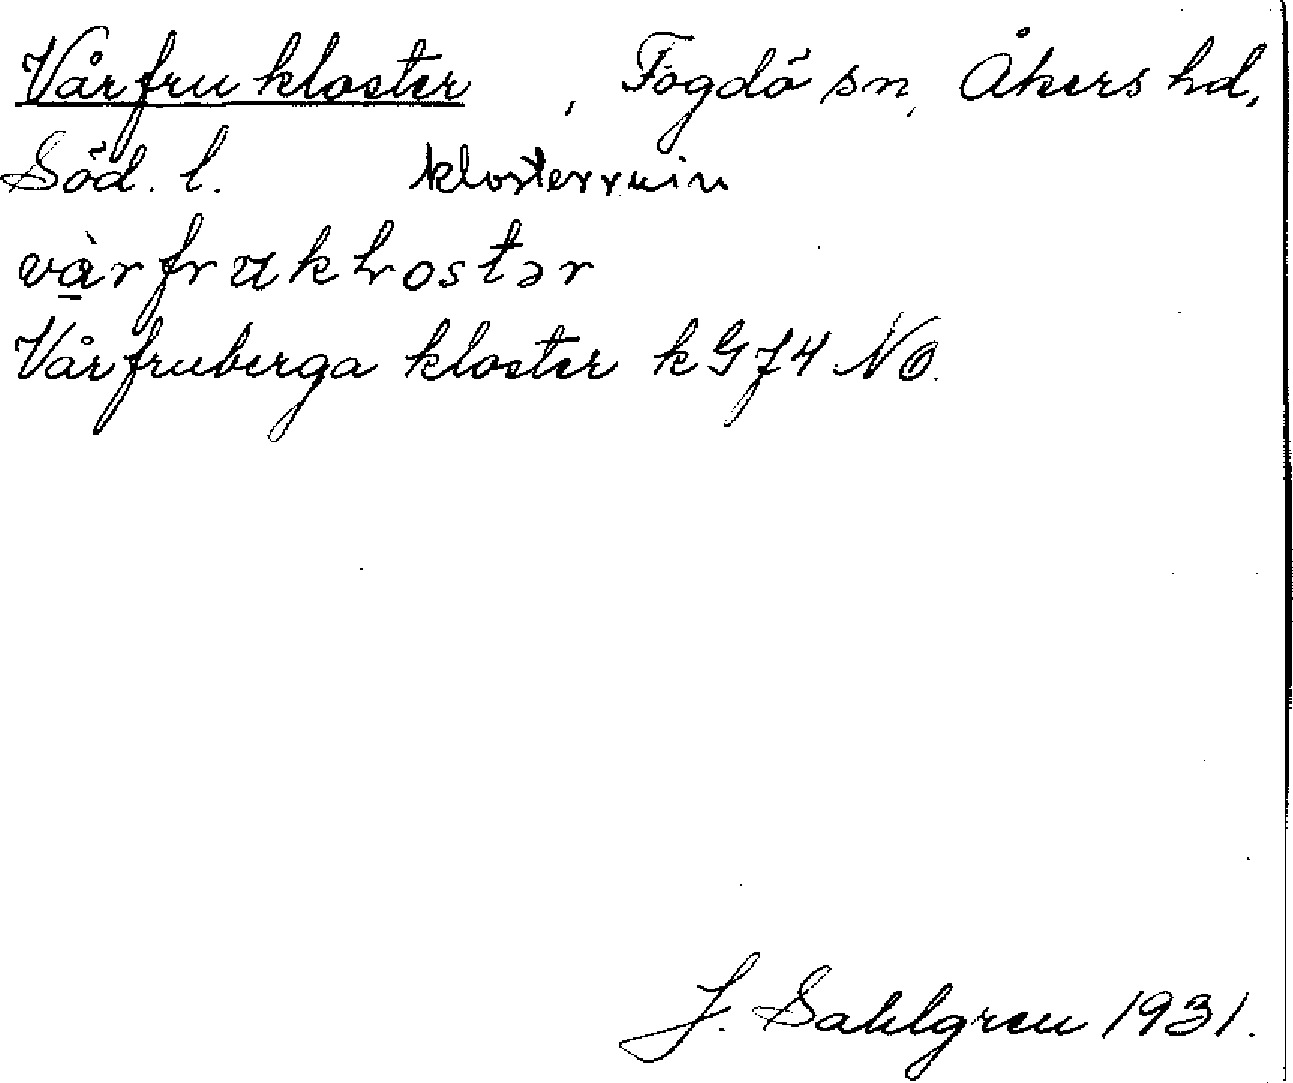 Vårfrukloster, Fogdö sn, Åkers hd,
Söd. l. klosterruin
Vårfruberga kloster k G74 NO.
J. Sahlgren 1931.